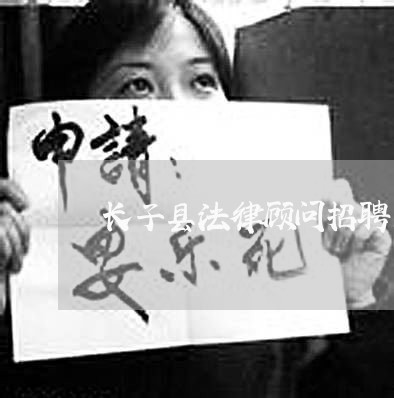 申請：
长子县法律顾问招聘
安乐死